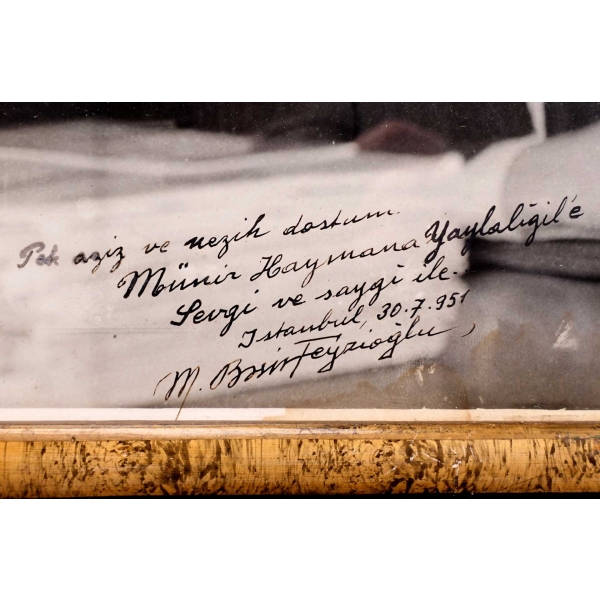 Pek aziz ve nezih dostum.
Münir Haymana Yaylalıgil'e
Sevgi ve saygi ile..
Istanbul, 30.7.951
M. Basir Feyzioğlu